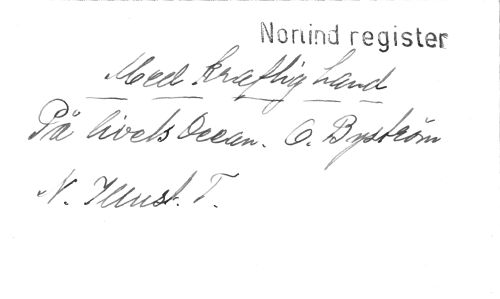 Norind register
Med kraftig Haand
På livets Ocean. O. Byström
N. Illust. T.